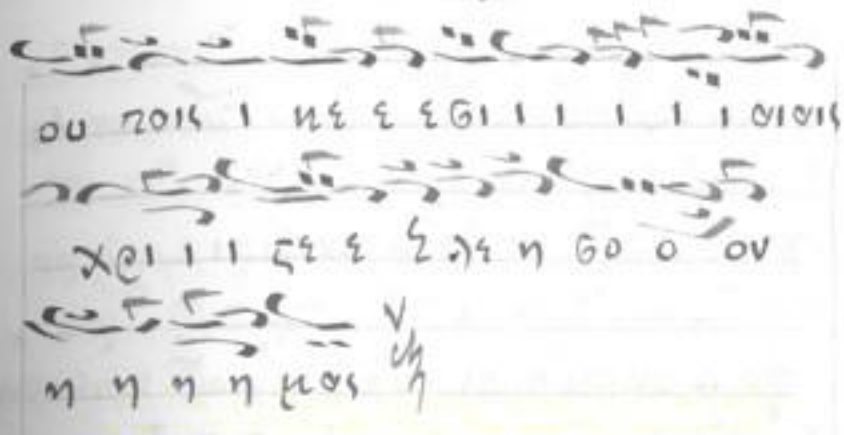 ου ποις ι νε ε ε σι ι ι ι ι ι αιαις
Χρι ι ι ϛε ε ε λε η σο ο ον
η η η η μας